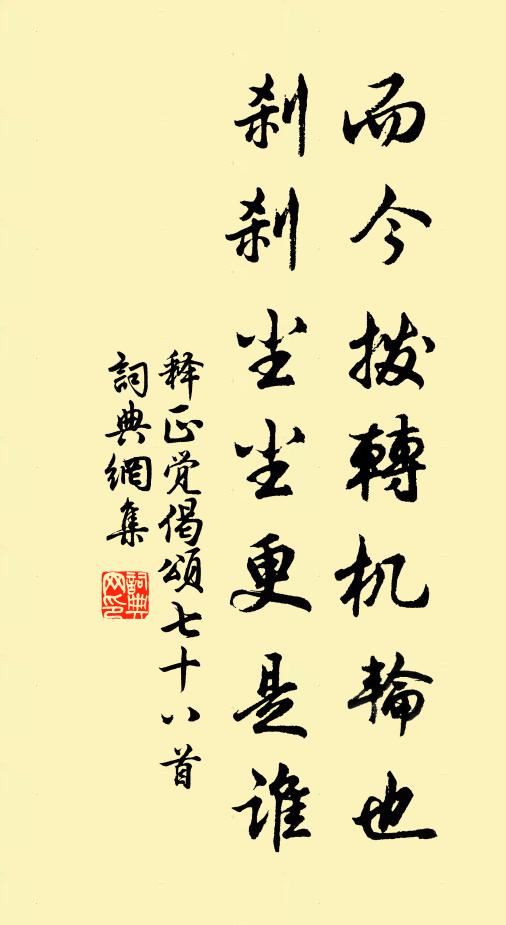 而今拨轉机輪也
刹刹尘尘更是谁
释正觉偈颂七十八首
詞典網集
詞典网印